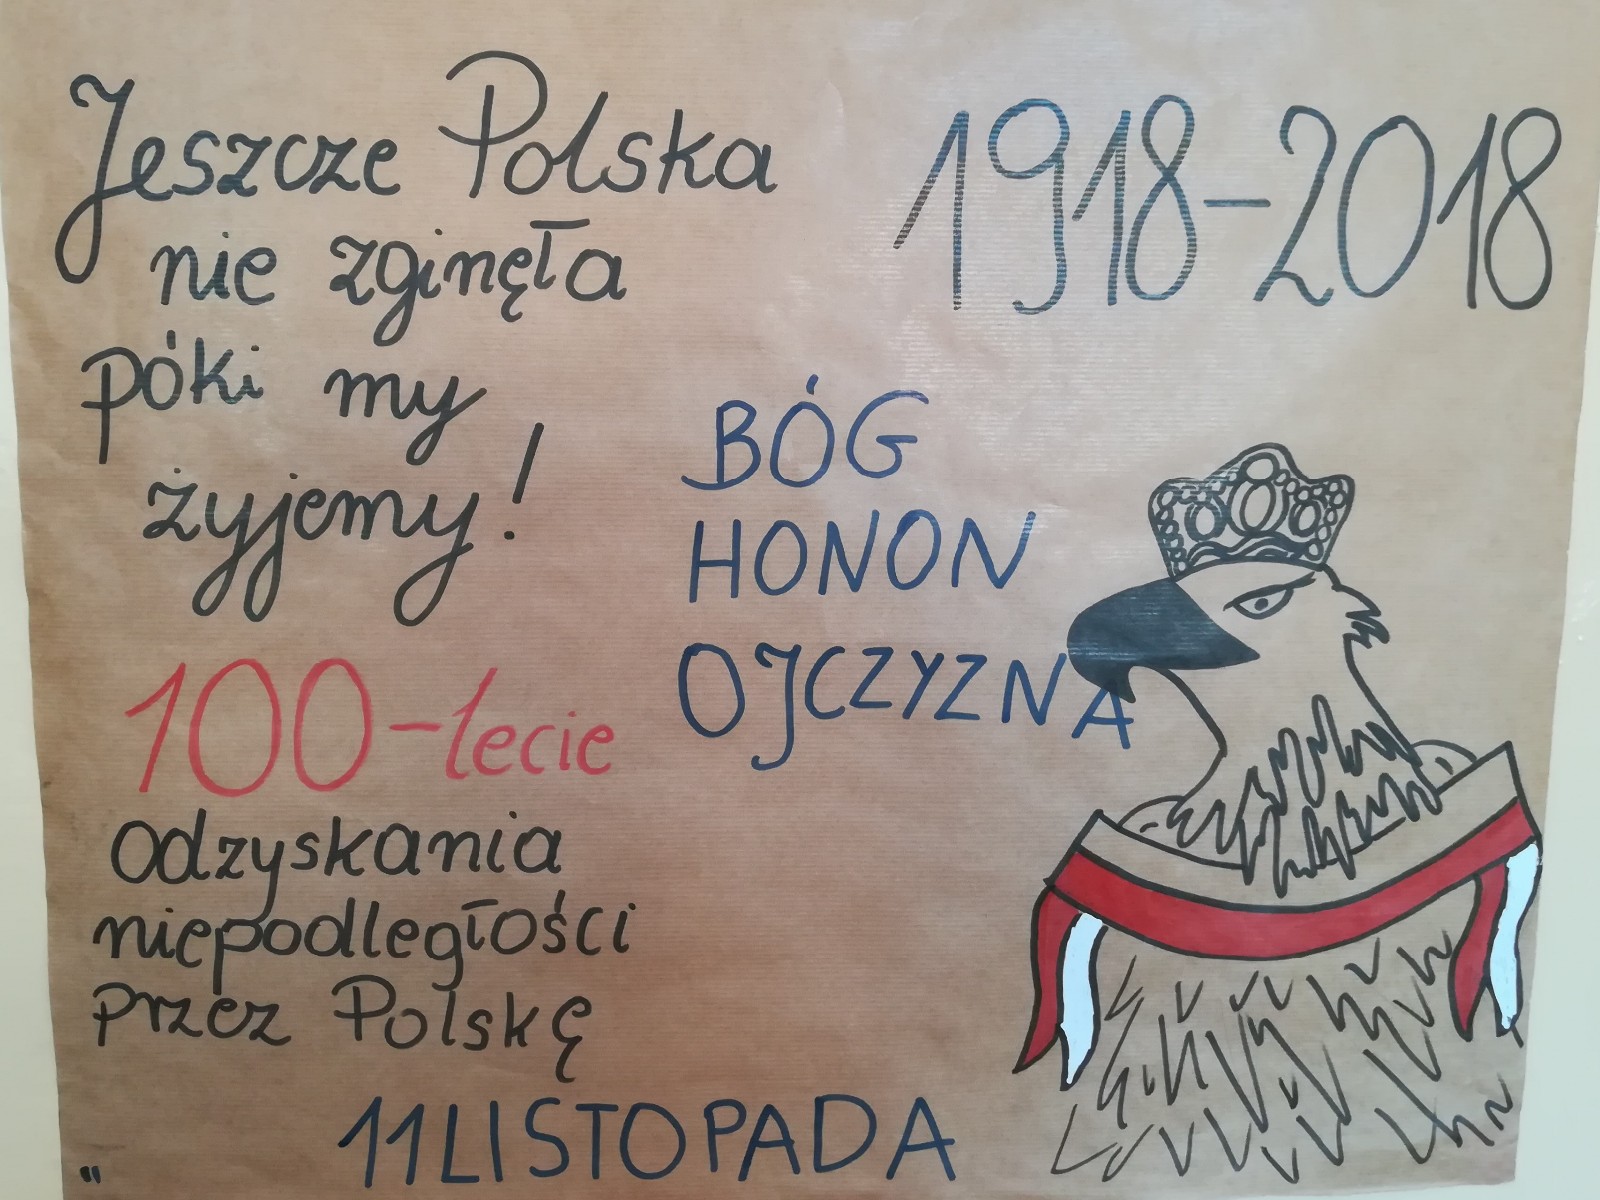 Jeszcze Polska
nie zginęła
póki my
żyjemy!
1918-2018
BÓG
HONON
OJCZYZNA
100-lecie
odzyskania
niepodległości
przez Polskę
11 LISTOPADA
"